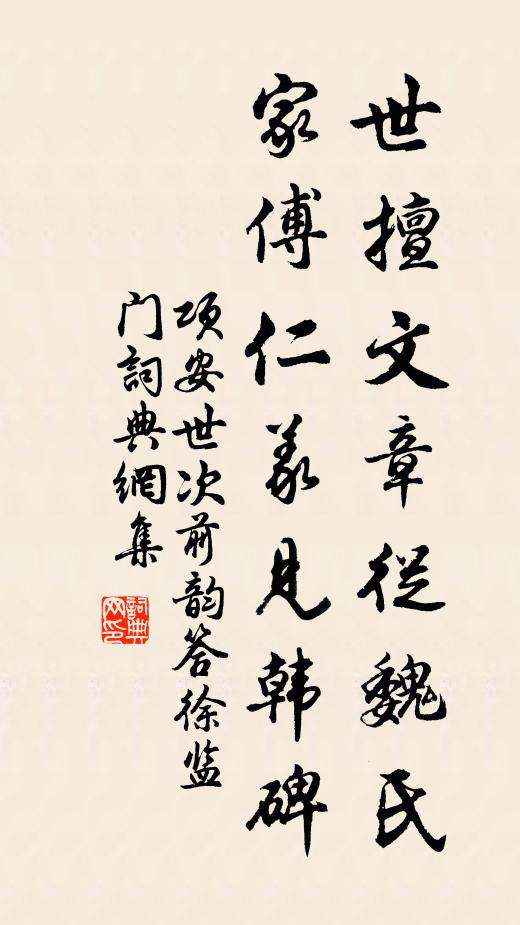 世擅文章從魏氏
家傅仁义見韩碑
项安世次前韵答徐监
门詞典網集
詞典网印